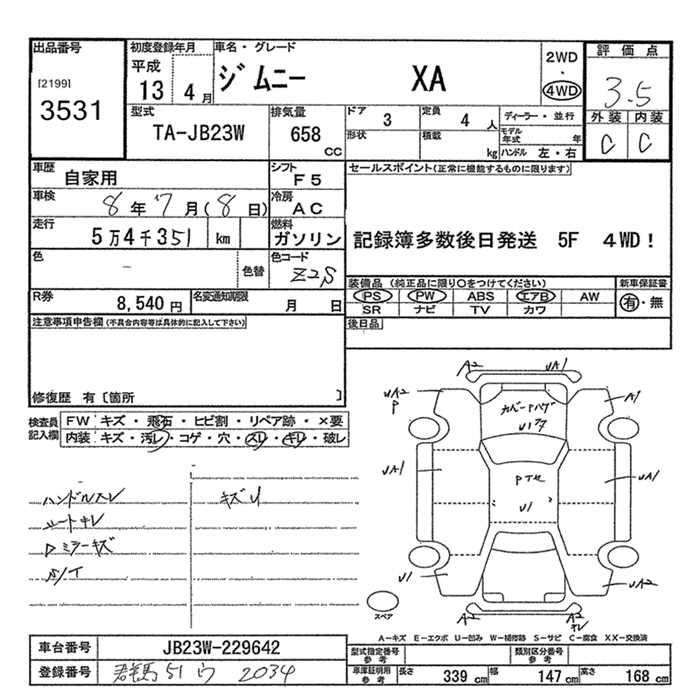 出品番号
[2199]
3531
初度登録年月
平成
13 4月
車名・グレード
ジムニー XA
2WD
・
4WD
評価点
3.5
外装 内装
C C
型式
TA-JB23W
排気量
658
cc
ドア 3
定員 4 人
形状
積載 kg
ディーラー・並行
モデル年式 年
ハンドル 左・右
車歴
自家用
シフト
F5
車検
8年7月(8日)
冷房
AC
走行
5万4千351 km
燃料
ガソリン
色 -
色替
色コード
Z2S
R券
8,540円
名変通知期限
月 日
セールスポイント(正常に機能するものに限ります)
記録簿多数後日発送 5F 4WD!
装備品 (純正品に限り○をつけてください)
新車保証書
PS PW ABS エアB AW
SR ナビ TV カワ
有・無
後日品
注意事項申告欄(不具合内容等は具体的に記入して下さい)
修復歴 有〔箇所 〕
検査員
記入欄
FW キズ・飛石・ヒビ割・リペア跡・×要
内装 キズ・汚レ・コゲ・穴・スレ・キレ・破レ
ハンドルスレ
シートキレ
ミラーキズ
キズU
A2
UA1
UA2
P
A1
UA1
UA1
U1
U1
UA2
A2
A2
スペア
A-キズ E-エクボ U-凹み W-補修跡 S-サビ C-腐食 XX-交換済
車台番号
JB23W-229642
登録番号
群馬 51 ウ 2034
型式指定番号
参考
類別区分番号
参考
車庫証明用
参考
長さ 339cm 幅 147cm 高さ 168cm